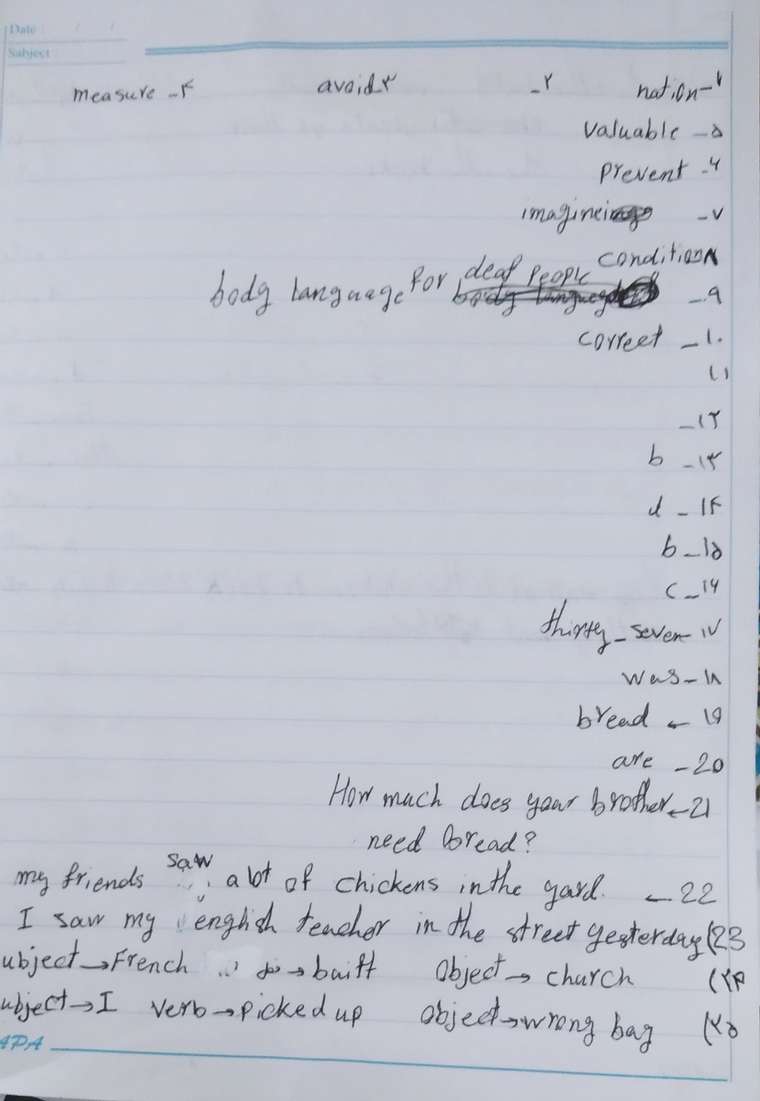 Date: / /
Subject:
nation - ۱ - ۲ avoid ۳ measure - ۴
valuable - ۵
prevent - ۶
imagine - ۷
condition ۸
body language for deaf people - ۹
correct - ۱۰
۱۱
- ۱۲
b - ۱۳
d - ۱۴
b - ۱۵
c - ۱۶
thirty - seven - ۱۷
was - ۱۸
bread - ۱۹
are - 20
How much does your brother - 21
need bread?
my friends saw a lot of chickens in the yard. - 22
I saw my english teacher in the street yesterday (23
ubject → French → built object → church (۲۴
ubject → I verb → picked up object → wrong bag (۲۵
APA